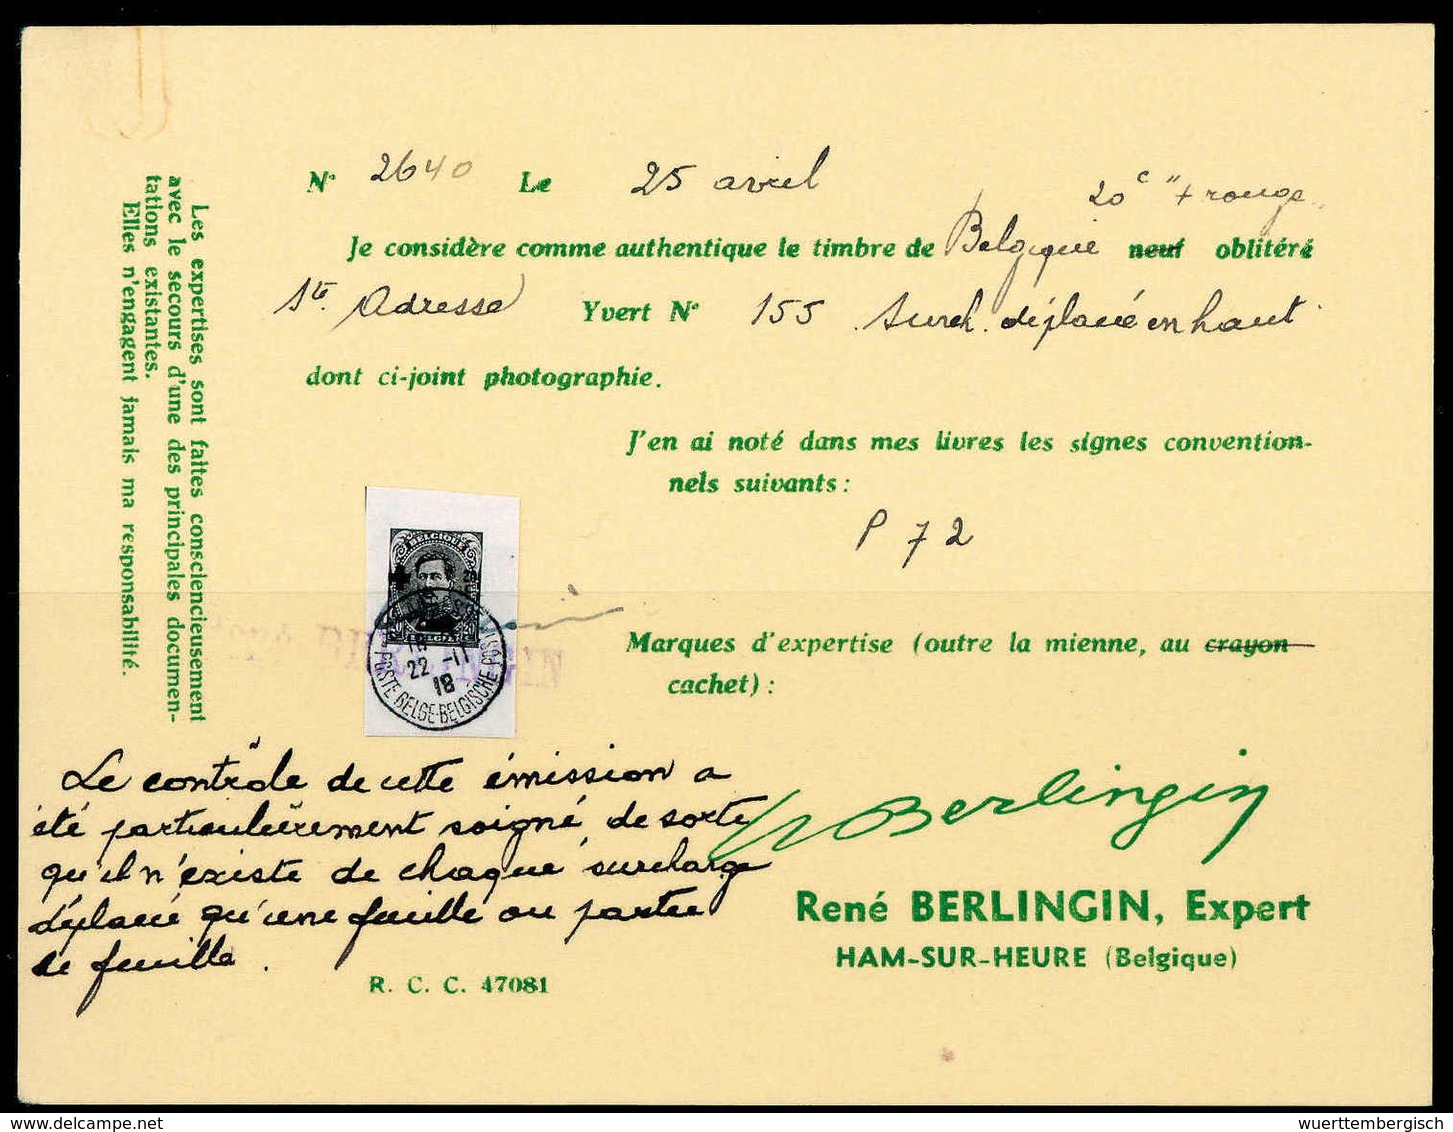 N° 2640 Le 25 avril
20c "+ rouge"
Je considère comme authentique le timbre de Belgique neuf oblitéré
Ste Adresse Yvert N° 155 Surch. déplacé en haut
dont ci-joint photographie.
J'en ai noté dans mes livres les signes convention-
nels suivants :
P 72
Marques d'expertise (outre la mienne, au crayon
cachet) :
Les expertises sont faites consciencieusement
avec le secours d'une des principales documen-
tations existantes.
Elles n'engagent jamais ma responsabilité.
BELGIQUE
20
18
22 -11
18
POSTE BELGE-BELGISCHE POST
Le contrôle de cette émission a
été particulièrement soigné, de sorte
qu'il n'existe de chaque surcharge
déplacé qu'une feuille ou partie
de feuille.
Berlingin
René BERLINGIN, Expert
HAM-SUR-HEURE (Belgique)
R. C. C. 47081
wuerttembergisch